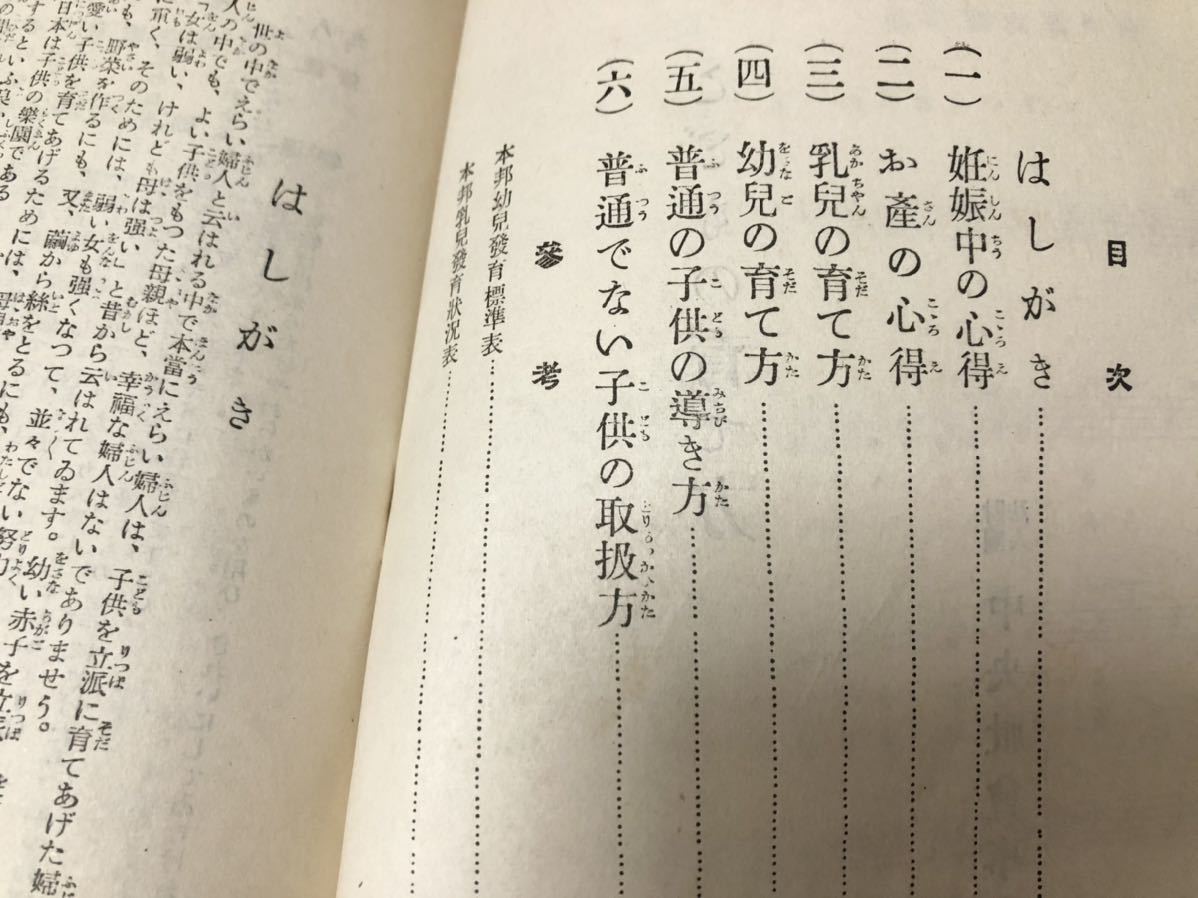 目次
はしがき
(一) 妊娠中の心得
(二) お產の心得
(三) 乳兒の育て方
(四) 幼兒の育て方
(五) 普通の子供の導き方
(六) 普通でない子供の取扱方
參考
本邦幼兒發育標準表
本邦乳兒發育狀況表
はしがき
世の中でえらい婦人と云はれる中で本當にえらい婦人は、子供を立派に育てあげた婦
人の中でも、よい子供をもつた母親ほど、幸福な婦人はないでありませう。
「女は弱い、けれども母は强い」と昔から云はれてゐます。幼い赤子を立
く、そのためには、弱い女も强くなつて、並々でない努力
も、野菜を作るにも、又、繭から絲をとるにも、
愛い子供を育てあげるためには、
日本は子供の樂園である
するといふ